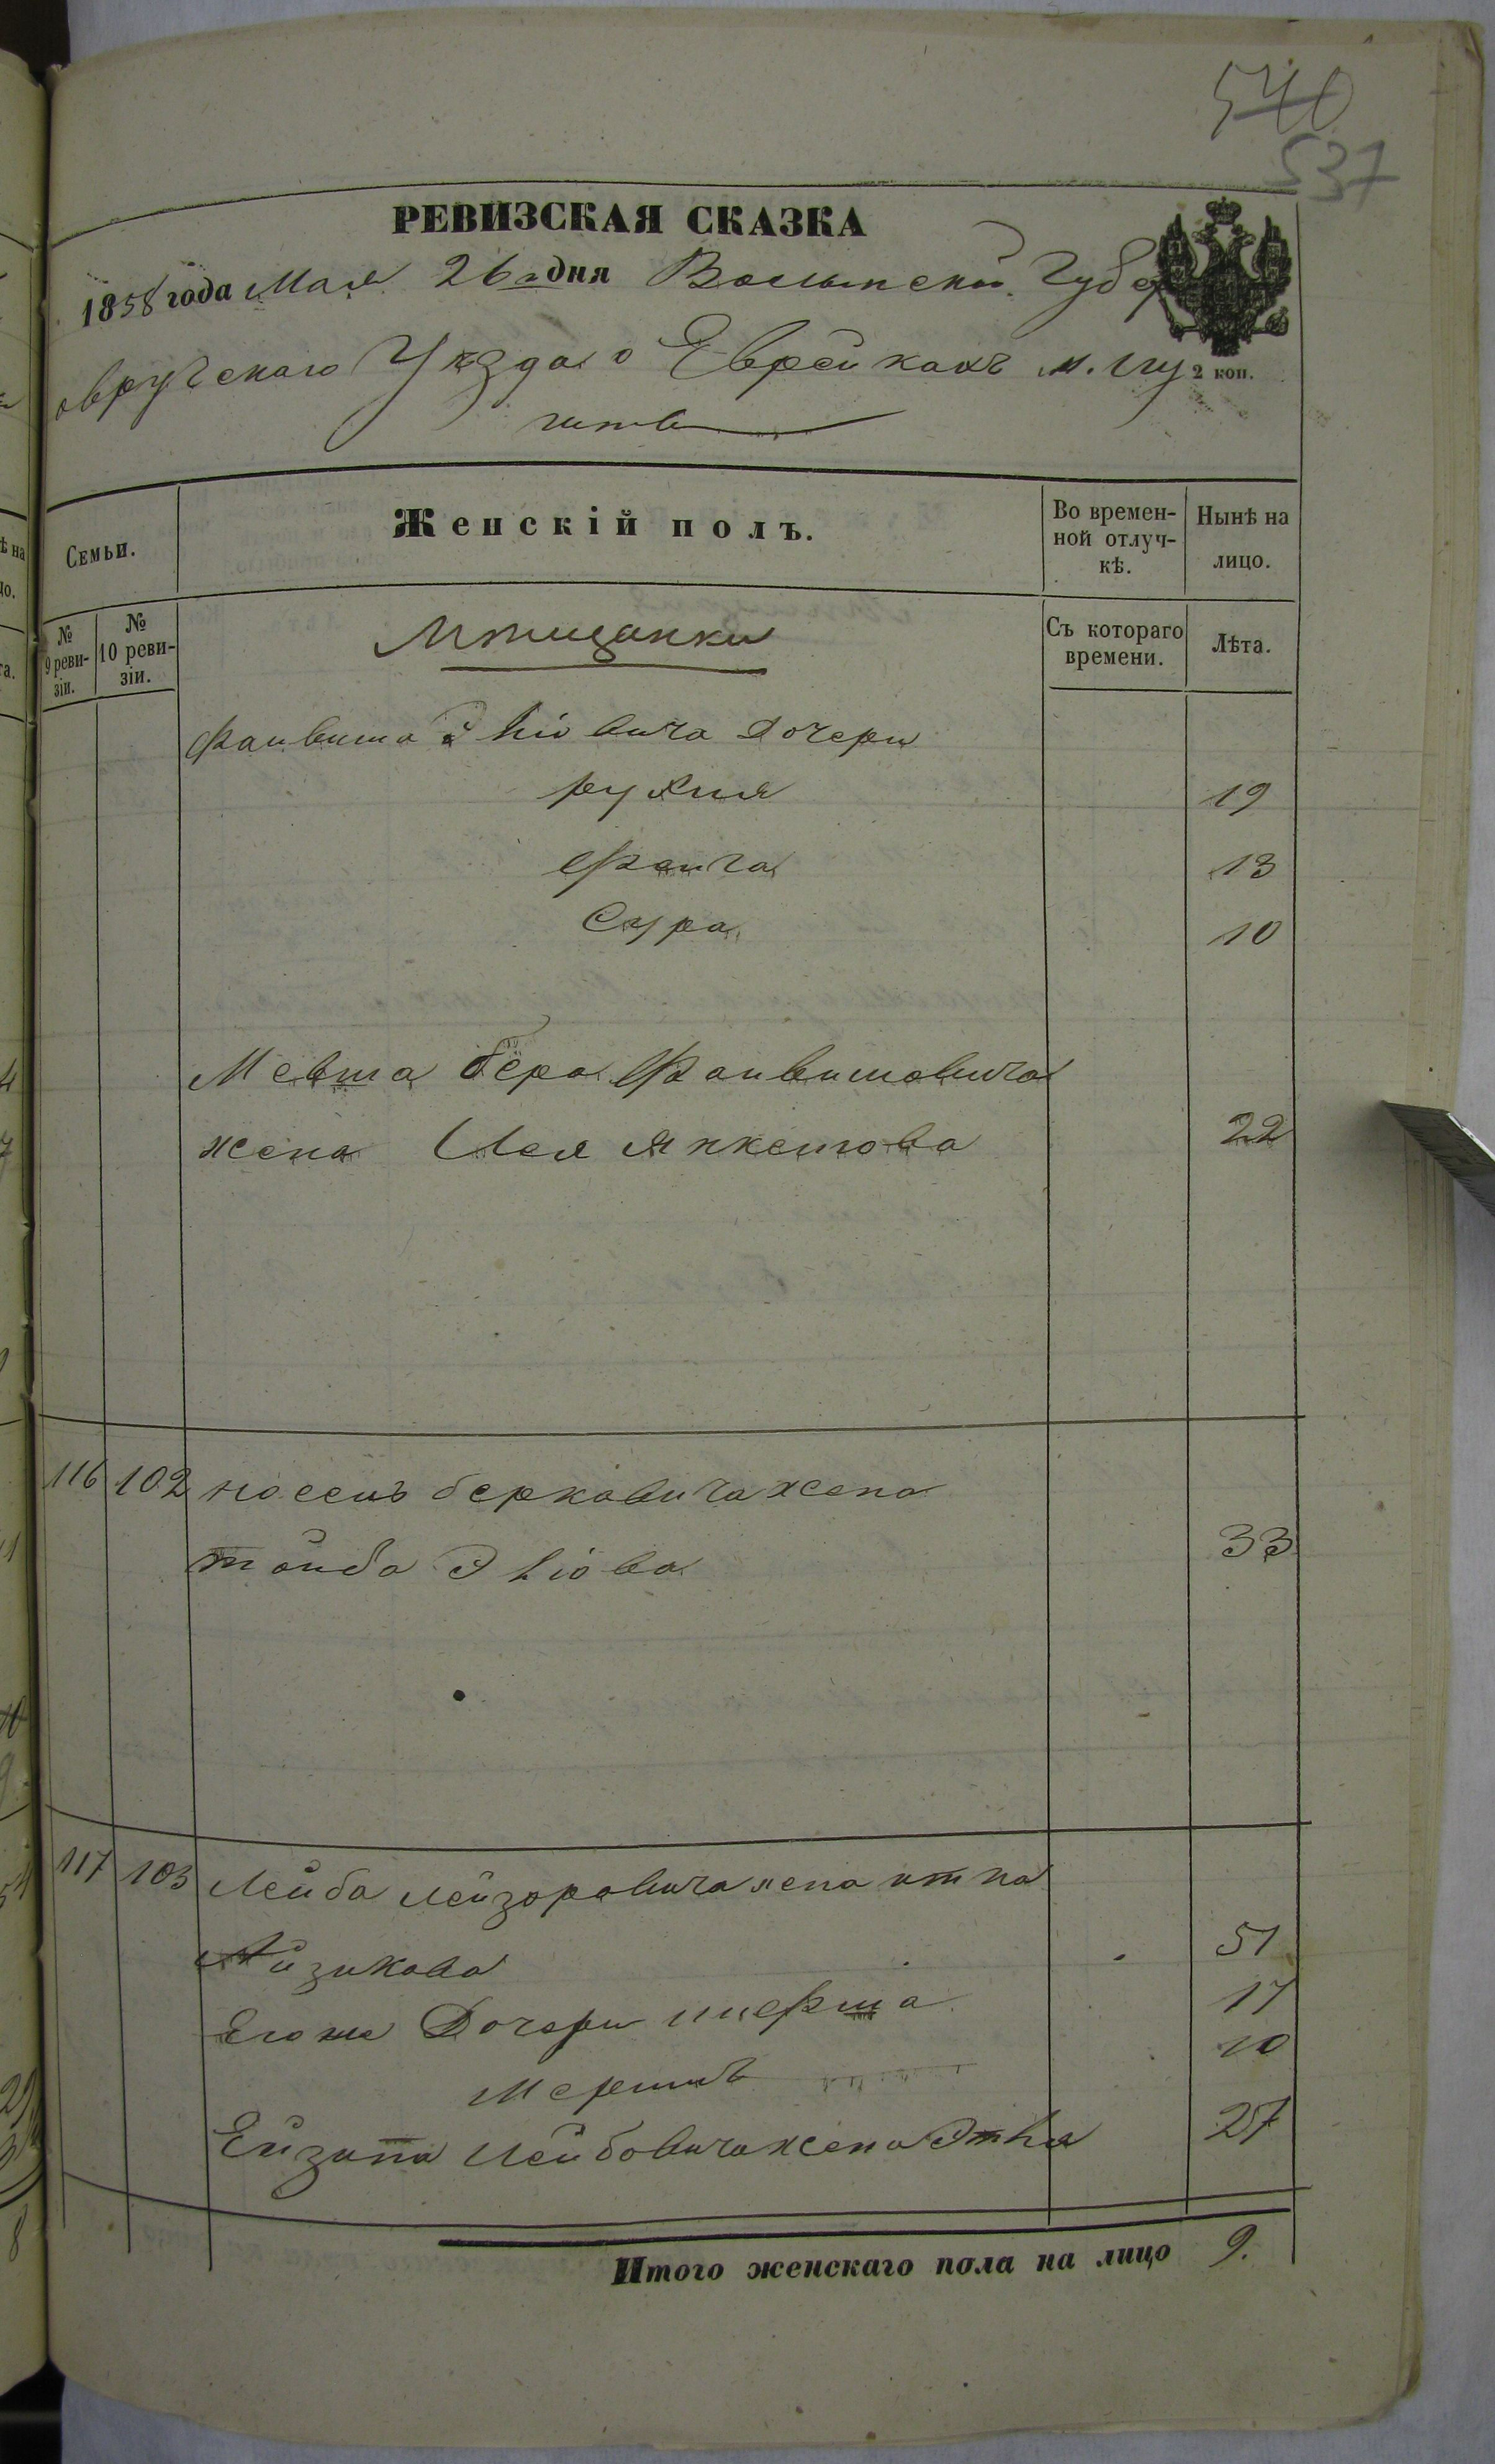 540
537
РЕВИЗСКАЯ СКАЗКА
1858 года Мая 26 дня Волынской Губер
2 коп.
овручскаго Уѣзда о Еврейкахъ м. Лу
гинъ
Семьи.
Женскій полъ.
Во времен-
ной отлуч-
кѣ.
Нынѣ на
лицо.
№
9 реви-
зіи.
№
10 реви-
зіи.
Мѣщанки
Съ котораго
времени.
Лѣта.
Фаивиша Эліовича Дочери
рухля 19
Фейга 13
Сура 10
бера Фаивишовича
жена Лея Янкелова 22
116 102 беркавича жена
тойба Эліова 33
117 103 Лейба Лейзоровича жена итка
Айзикова 51
Егоже Дочери 17
10
Лейбовича жена 27
Итого женскаго пола на лицо 9.